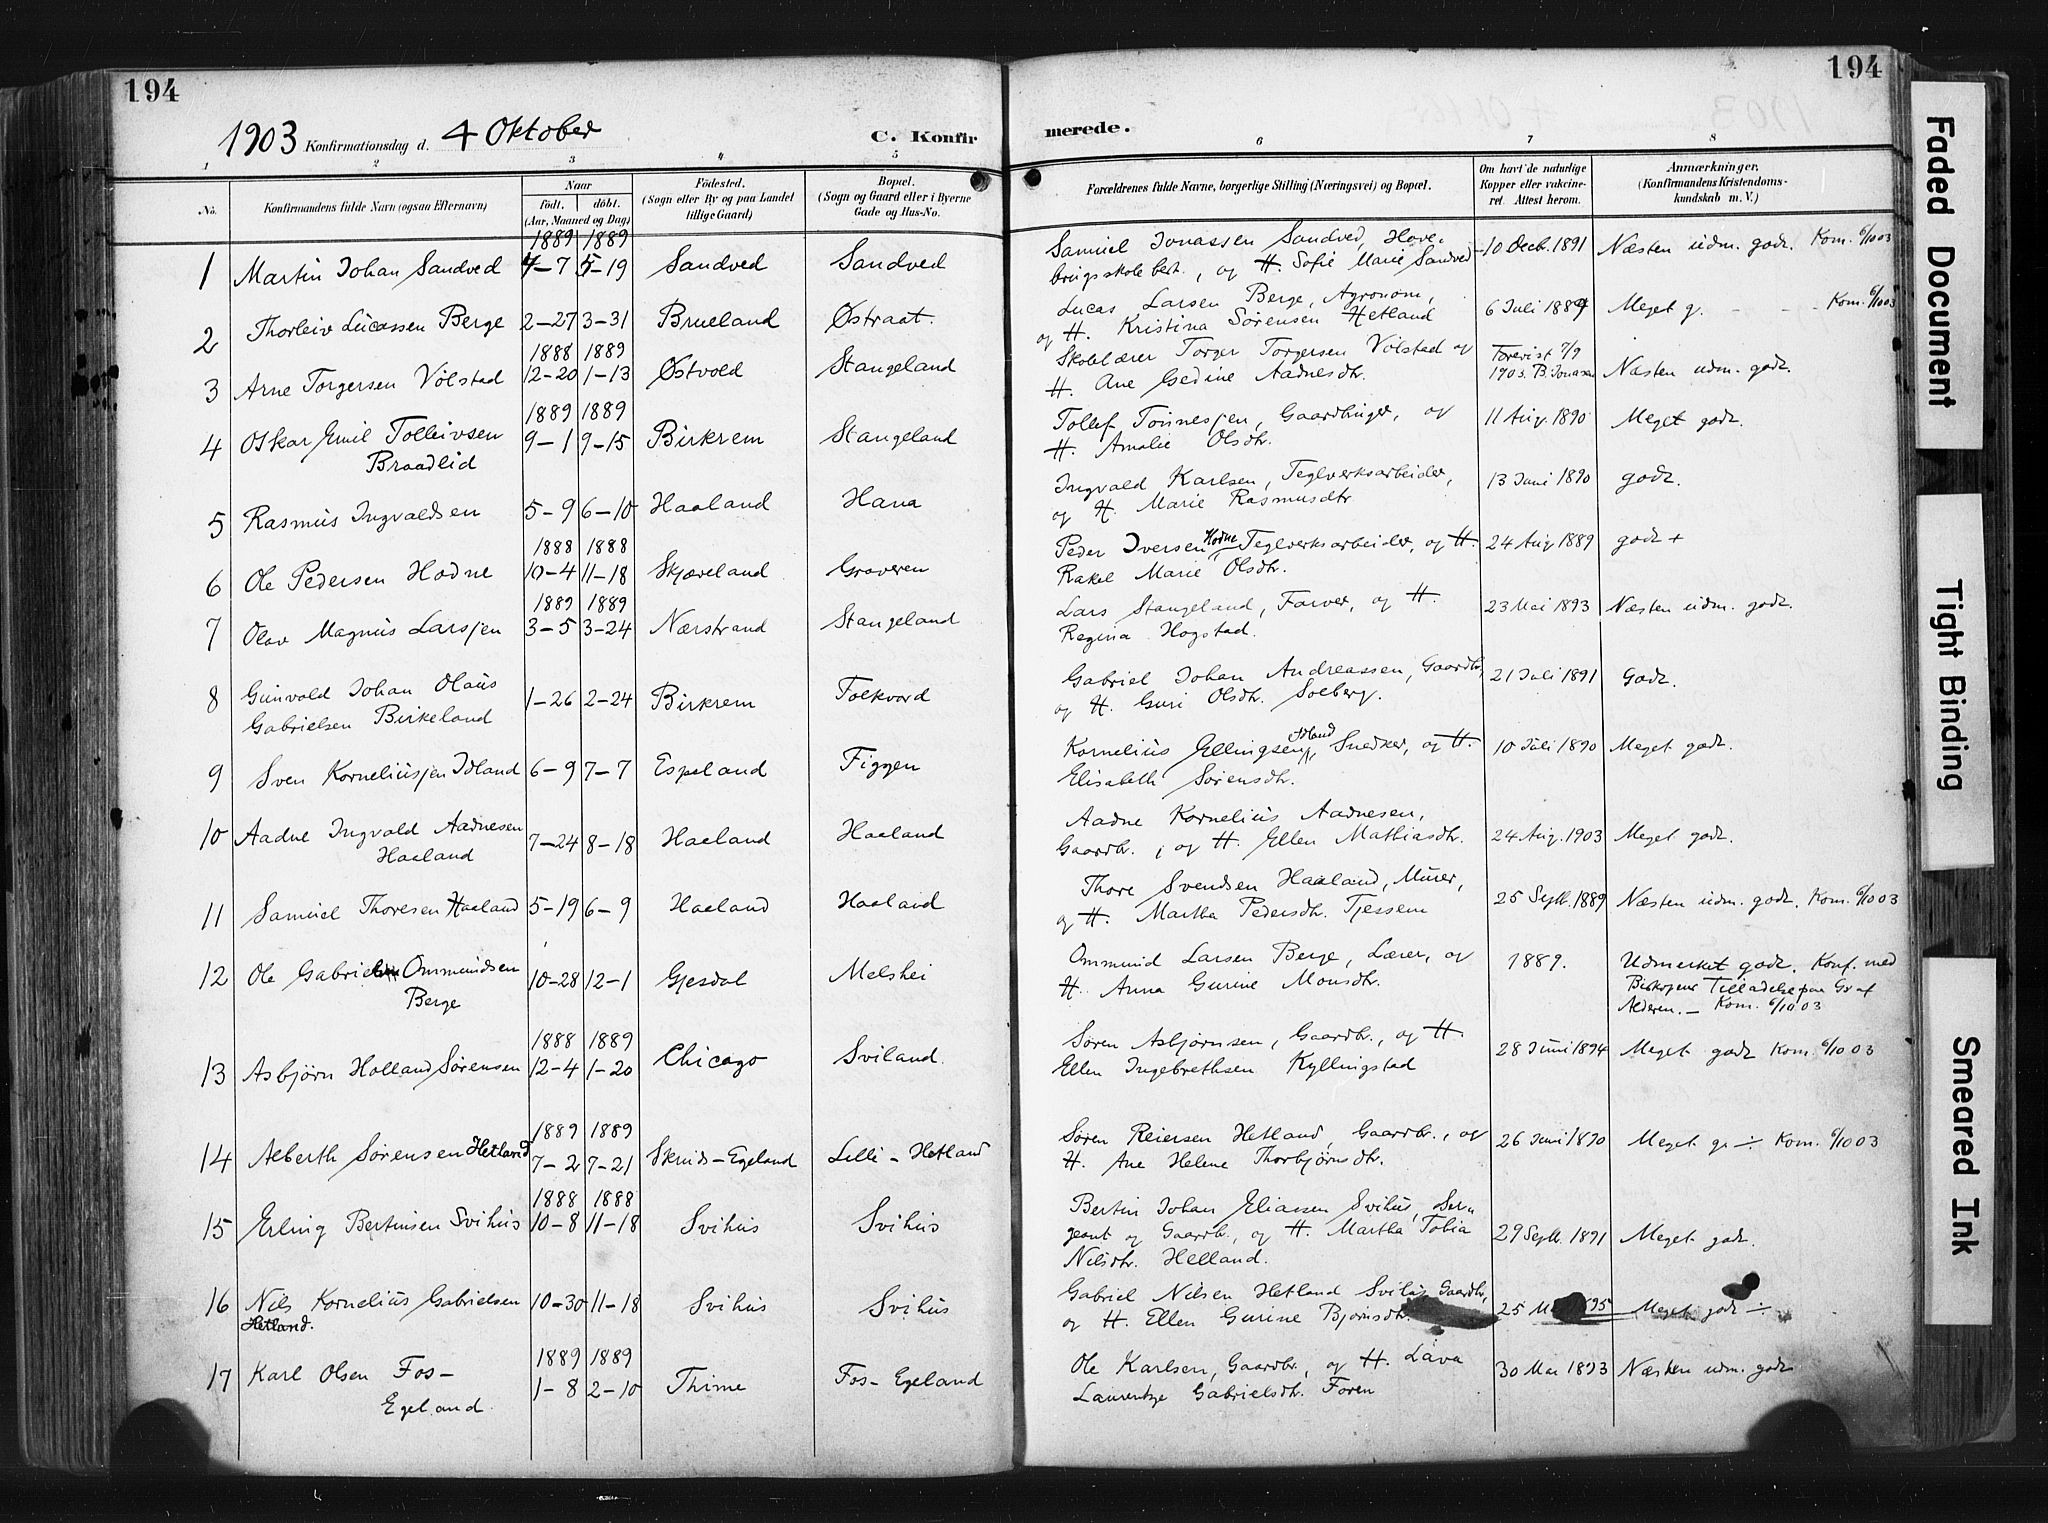 194
194
1903 Konfirmationsdag d. 4 Oktober C. Konfirmerede.
1 2 3 4 5 6 7 8
No. Konfirmandens fulde Navn (ogsaa Efternavn) Naar født. døbt. (Aar, Maaned og Dag) Fødested. (Sogn eller By og paa Landet tillige Gaard) Bopæl. (Sogn og Gaard eller i Byerne Gade og Hus-No. Forældrenes fulde Navne, borgerlige Stilling (Næringsvei) og Bopæl. Om havt de naturlige Kopper eller vakcineret. Attest herom. Anmærkninger. (Konfirmandens Kristendomskundskab m. V.)
1889 1889
1 Martin Johan Sandved 4-7 5-19 Sandved Sandved Samuel Jonassen Sandved, Havebrugsskolebest., og H. Sofie Marie Sandved 10 Decb. 1891 Næsten udm. godt. Kom. 6/10 03
2 Thorleiv Lucassen Berge 2-27 3-31 Brueland Østraat. Lucas Larsen Berge, Agronom, og H. Kristina Sørensen Hetland 6 Juli 1889 Meget g. Kom. 6/10 03
1888 1889
3 Arne Torgersen Vølstad 12-20 1-13 Østvold Stangeland Skolelærer Torger Torgersen Vølstad og H. Ane Gedine Aadnesdtr. Forevist 7/9 1903. B. Jonasen Næsten udm. godt.
1889 1889
4 Oskar Emil Tolleivsen Braadlid 9-1 9-15 Birkrem Stangeland Tollef Tønnesjen, Gaardbruger, og H. Amalie Olsdtr. 11 Aug. 1890 Meget godt.
5 Rasmus Ingvaldsen 5-9 6-10 Haaland Hana Ingvald Karlsen, Teglverksarbeider, og H. Marie Rasmusdtr 13 Juni 1890 godt.
1888 1888
6 Ole Pedersen Hodne 10-4 11-18 Skjæveland Graveren Peder Iversen Hodne Teglverksarbeider, og H. Rakel Marie Olsdtr. 24 Aug 1889 godt +
1889 1889
7 Olav Magnus Larsjen 3-5 3-24 Nærstrand Stangeland Lars Stangeland, Farver, og H. Regina Hogstad. 23 Mai 1893 Næsten udm. godt.
8 Gunvald Johan Olaus Gabrielsen Birkeland 1-26 2-24 Birkrem Folkvord Gabriel Johan Andreassen, Gaardbr, og H. Guri Olsdtr. Solberg. 21 Juli 1891 Godt.
9 Sven Korneliusjen Idland 6-9 7-7 Espeland Figgen Kornelius Ellingsen Idland, Snedker, og H. Elisabeth Sørensdtr. 10 Juli 1890 Meget godt.
10 Aadne Ingvald Aadnesen Haaland 7-24 8-18 Haaland Haaland Aadne Kornelius Aadnesen, Gaardbr., og H. Ellen Mathiasdtr. 24 Aug. 1903 Meget godt.
11 Samuel Thoresen Haaland 5-19 6-9 Haaland Haaland Thore Svendsen Haaland, Murer, og H. Martha Pedersdtr. Tjessem 25 Septb. 1889 Næsten udm. godt. Kom. 6/10 03
12 Ole Gabriel Ommundsen Berge 10-28 12-1 Gjesdal Melshei Ommund Larsen Berge, Lærer, og H. Anna Gurine Monsdtr. 1889. Udmerket godt. Konf. med Biskopens Tilladelse paa Gr af Alderen. - Kom. 6/10 03
1888 1889
13 Asbjørn Holland Sørensen 12-4 1-20 Chicago Sviland. Søren Asbjørnsen, Gaardbr., og H. Ellen Ingebrethsen Kyllingstad 28 Juni 1894 Meget godt Kom. 6/10 03
1889 1889
14 Alberth Sørensen Hetland 7-2 7-21 Skruds-Egeland Lille-Hetland Søren Reiersen Hetland, Gaardbr., og H. Ane Helene Thorbjørnsdtr. 26 Juni 1890 Meget g. ÷ Kom. 6/10 03
1888 1888
15 Erling Bertinsen Svihus 10-8 11-18 Svihus Svihus Bertin Johan Eliassen Svihus, Sergeant og Gaardbr., og H. Martha Tobia Nilsdtr. Helland. 29 Septb. 1891 Meget godt.
16 Nils Kornelius Gabrielsen Hetland. 10-30 11-18 Svihus Svihus Gabriel Nilsen Hetland Svihus Gaardbr, og H. Ellen Gurine Bjørnsdtr. 25 1895 Meget godt ÷
1889 1889
17 Karl Olsen Fos-Egeland 1-8 2-10 Thime Fos-Egeland Ole Karlsen, Gaardbr., og H. Lava Laurentze Gabrielsdtr. Foren 30 Mai 1893 Næsten udm. godt
Faded Document
Tight Binding
Smeared Ink